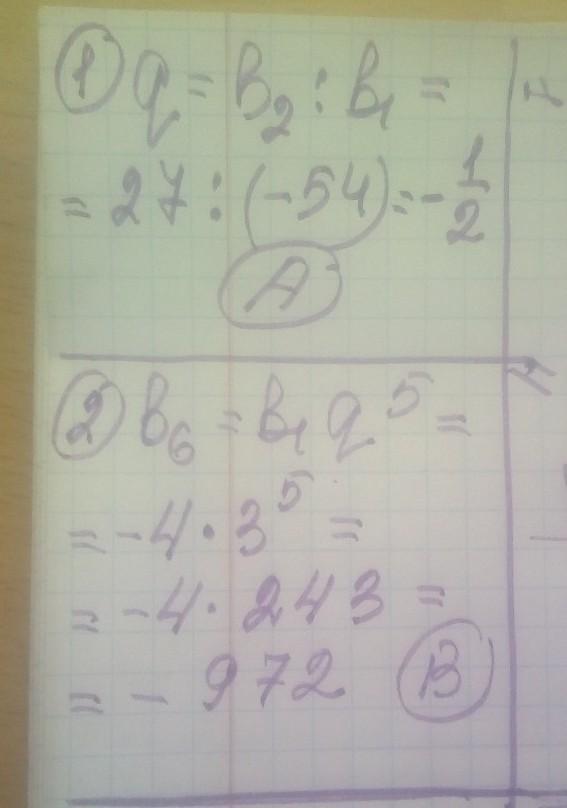 ① q = b₂ : b₁ =
= 27 : (-54) = -1/2
А
② b₆ = b₁ q⁵ =
= -4 · 3⁵ =
= -4 · 243 =
= - 972 В